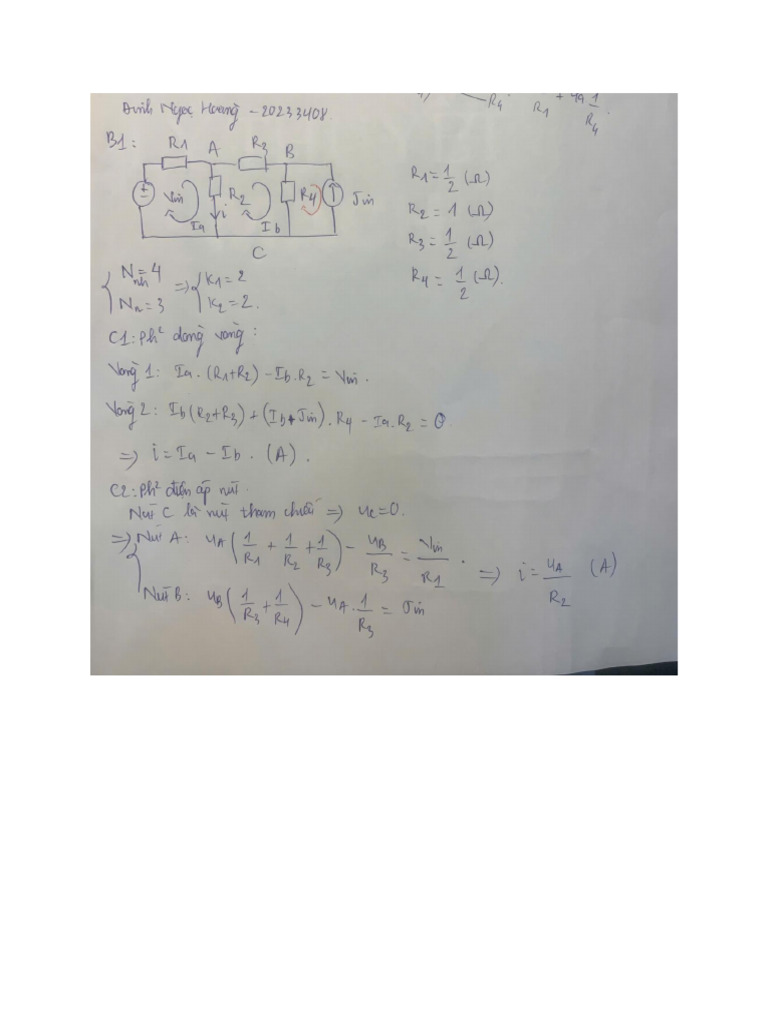 Đinh Ngọc Hoàng - 20233408
R4 R1 + 1/R4
B1:
R1 A R3 B
Vin R2 R4 Jin
i
Ia Ib
C
R1 = 1/2 (Ω)
R2 = 1 (Ω)
R3 = 1/2 (Ω)
R4 = 1/2 (Ω).
{ Nnh = 4 => { K1 = 2
Nn = 3 K2 = 2.
C1: Ph² dòng vòng:
Vòng 1: Ia.(R1+R2) - Ib.R2 = Vin.
Vòng 2: Ib(R2+R3) + (Ib+Jin).R4 - Ia.R2 = 0.
=> i = Ia - Ib. (A).
C2: Ph² điện áp nút.
Nút C là nút tham chiếu => uc = 0.
=> { Nút A: uA(1/R1 + 1/R2 + 1/R3) - uB/R3 = Vin/R1. => i = uA/R2 (A)
Nút B: uB(1/R3 + 1/R4) - uA.1/R3 = Jin